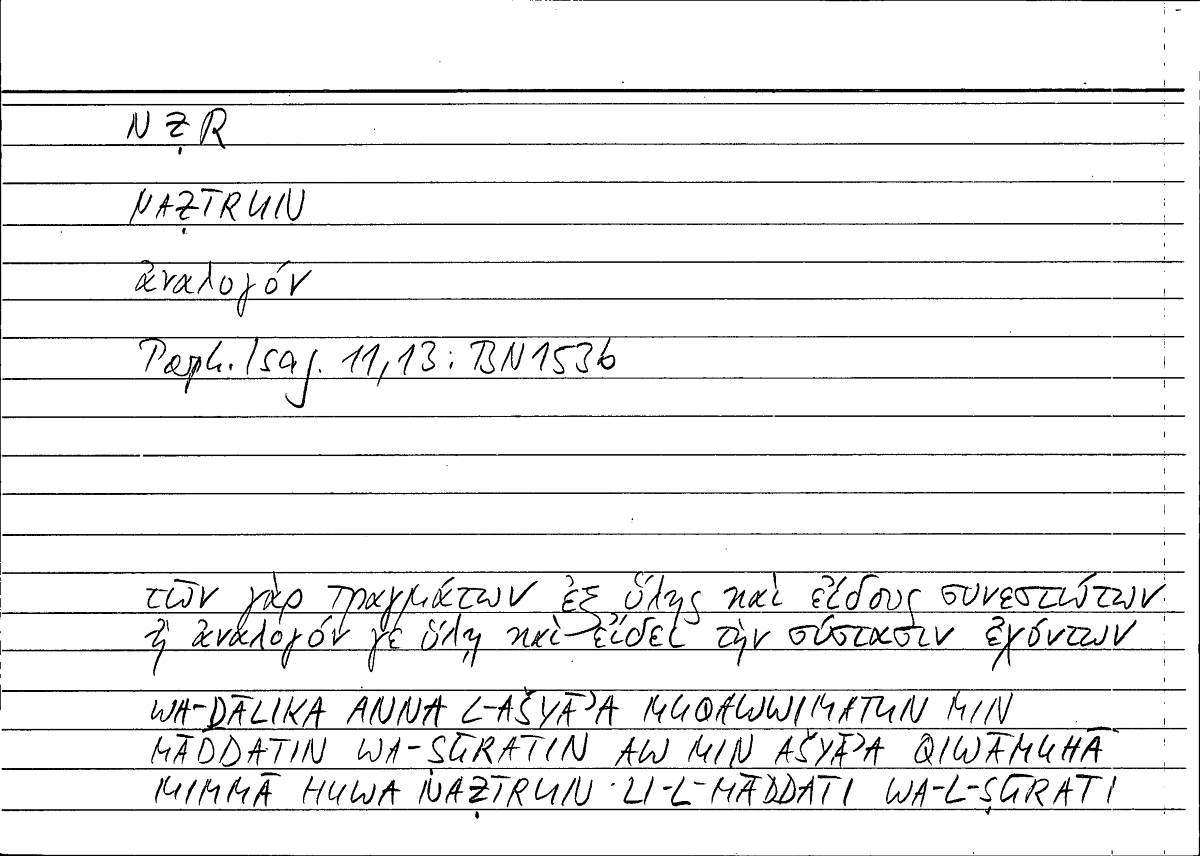 N Ẓ R
NAẒĪRUN
ἀναλογόν
Porph. Isag. 11,13: BN153b
τῶν γὰρ πραγμάτων ἐξ ὕλης καὶ εἴδους συνεστώτων
ἢ ἀναλογόν γε ὕλῃ καὶ εἴδει τὴν σύστασιν ἐχόντων
WA-ḎĀLIKA ANNA L-AŠYĀʾA MUQAWWIMATUN MIN
MĀDDATIN WA-ṢŪRATIN AW MIN AŠYĀʾA QIWĀMUHĀ
MIMMĀ HUWA NAẒĪRUN LI-L-MĀDDATI WA-L-ṢŪRATI